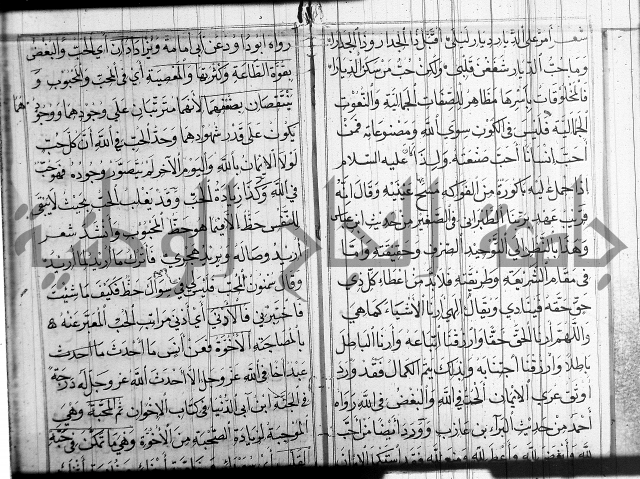 شعر أمر على الديار ديار ليلى أقبل ذا الجدار وذا الجدارا
وما حب الديار شغفن قلبي ولكن حب من سكن الديارا
فالمخلوقات بأسرها مظاهر للصفات الجمالية والنعوت
الجلالية فليس في الكون سوى الله ومصنوعاته فمن
أحب إنسانا أحب صنعته ولذا عليه السلام
اذا حمل إليه باكورة من الفواكه مسح عينيه وقال انه
قريب عهد بربنا الطبراني في الصغير من حديث ابن عباس
وهذا بالنظر الى التوحيد الصرف وحقيقته وأما
في مقام الشريعة وطريقته فلا بد من اعطاء كل ذي
حق حقه فينادي ويقال الهي أرنا الأشياء كما هي
واللهم أرنا الحق حقا وارزقنا اتباعه وأرنا الباطل
باطلا وارزقنا اجتنابه وبذلك يتم الكمال فقد ورد
أوثق عرى الإيمان الحب في الله والبغض في الله رواه
أحمد من حديث البراء بن عازب وورد أيضا من أحب
لله وأبغض لله وأعطى لله ومنع لله فقد استكمل الإيمان
رواه أبو داود عن أبي أمامة ويزاد أن أي الحب والبغض
بقوة الطاعة وكثرتها والمعصية أي في المحب والمحبوب و
ينتقصان بضعفهما لأنهما مترتبان على وجودهما ووجودهما
يكون على قدر شهودهما وحد الحب في الله أن كل حب
لولا الإيمان بالله واليوم الآخر لم يتصور وجوده فهو حب
في الله وكذا زيادة الحب وقد يغلب الحب بحيث لا يبقى
للنفس حظ الا فيما هو حظ المحبوب وأنشد شعر
أريد وصاله ويريد هجري فأترك ما أريد لما يريد
وقال سمنون المحب فليس لي في سواك حظ فكيف ما شئت
فاختبرني فالأولى أي أدنى مراتب الحب المعبر عنه
بالمصاحبة الأخوة فعن أنس ما أحدث ما أحدث
عبد أخا في الله عز وجل الا أحدث الله عز وجل له درجة
في الجنة ابن أبي الدنيا في كتاب الاخوان ثم المحبة وهي
الموجبة لزيادة الصحبة من الأخوة وهي ما تمكن في حبة
جامعة النجاح الوطنية